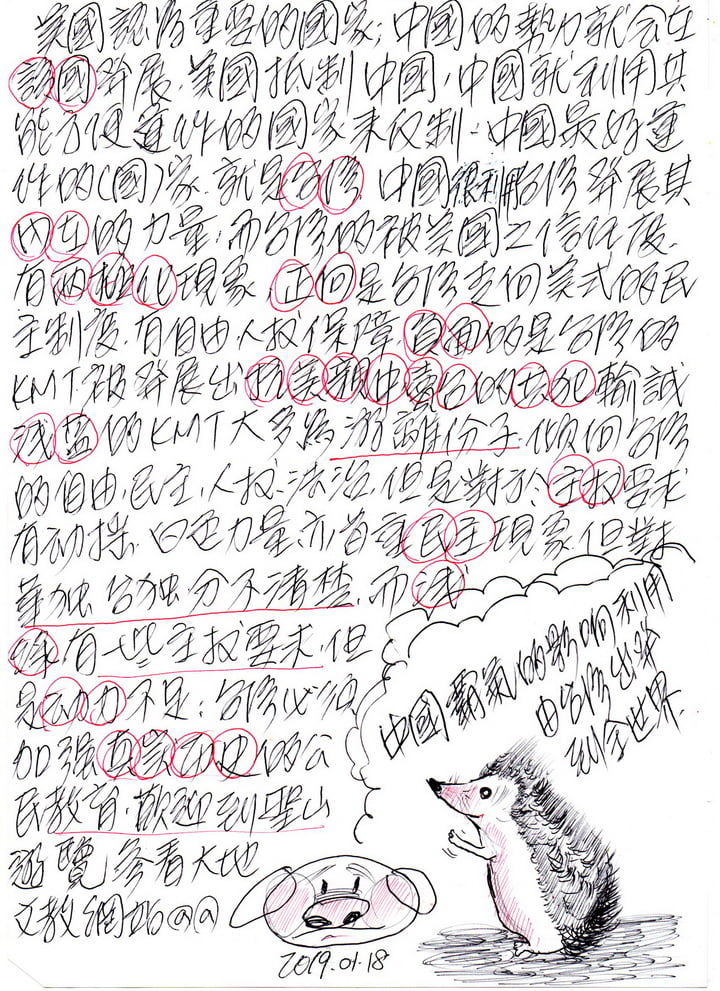 美國認為重要的國家；中國的勢力就会在
該國發展．美國抵制中國，中國就利用其
能方便運作的國家來反制．中國最好運
作的(國)家．就是台灣．中國很利用台灣發展其
內在的力量；而台灣的被美國之信任度．
有兩極化現象．正向是台灣走向美式的民
主制度．有自由人权保障．負面的是台灣的
KMT被發展出抗美親中賣台的 輸誠
浅蓝的KMT大多為游離份子．傾向台灣
的自由．民主．人权．法治．但是對於主权要求
有动搖．白色力量．亦首重民主現象．但對
華独 台独 分不清楚．而浅
綠．有一些主权要求．但
是动力不足；台灣必須
加强真實历史的公
民教育．歡迎到聖山
遊覽參看大地
文教網站@@
中國霸氣的影响利用
由台灣出發
到全世界．
2019.01.18